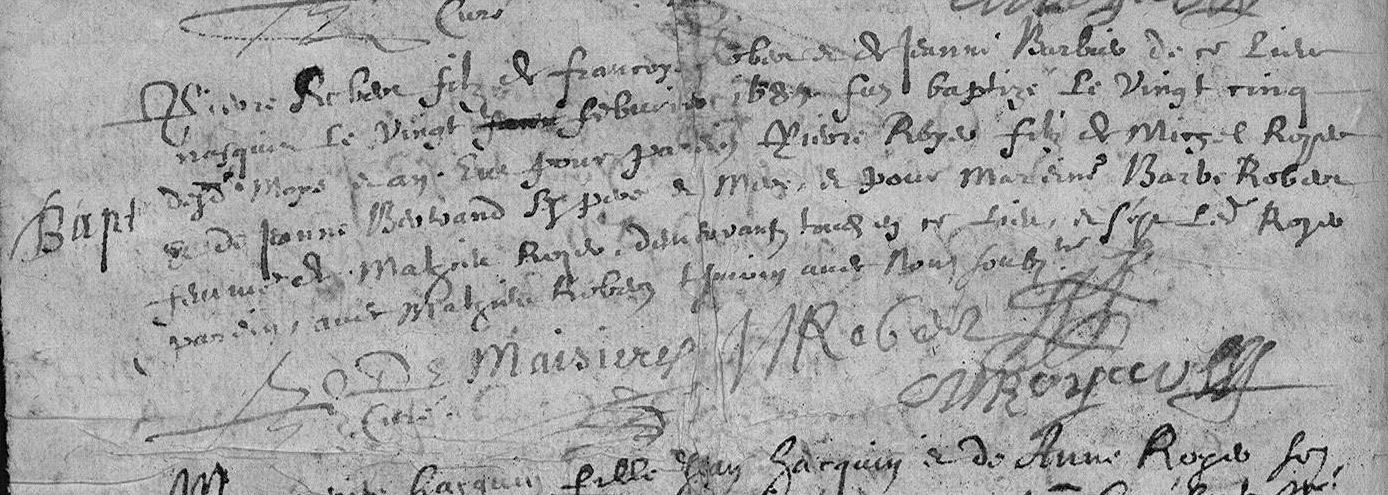 Curé
Pierre Robert filz de Francoy Robert et de Jeanne Barbier de ce Lieu
nasquit Le Vingt febvrier fut baptizé Le Vingt cinq
Bapt
desd. Moys et an. eut pour parein Pierre Royer filz de Migel Royer
et de Jeanne Bertrand Ses pere et Mere, et pour Mareine Barbe Robert
femme de Mathieu Royer, demeurantz tous en ce Lieu, et Led. Royer
parein, avec Mathieu Robert tesmoin avec Nous soub.
De Maisieres
Robert
Royer
Curé
fille Jean Jacquin et de Anne Royer